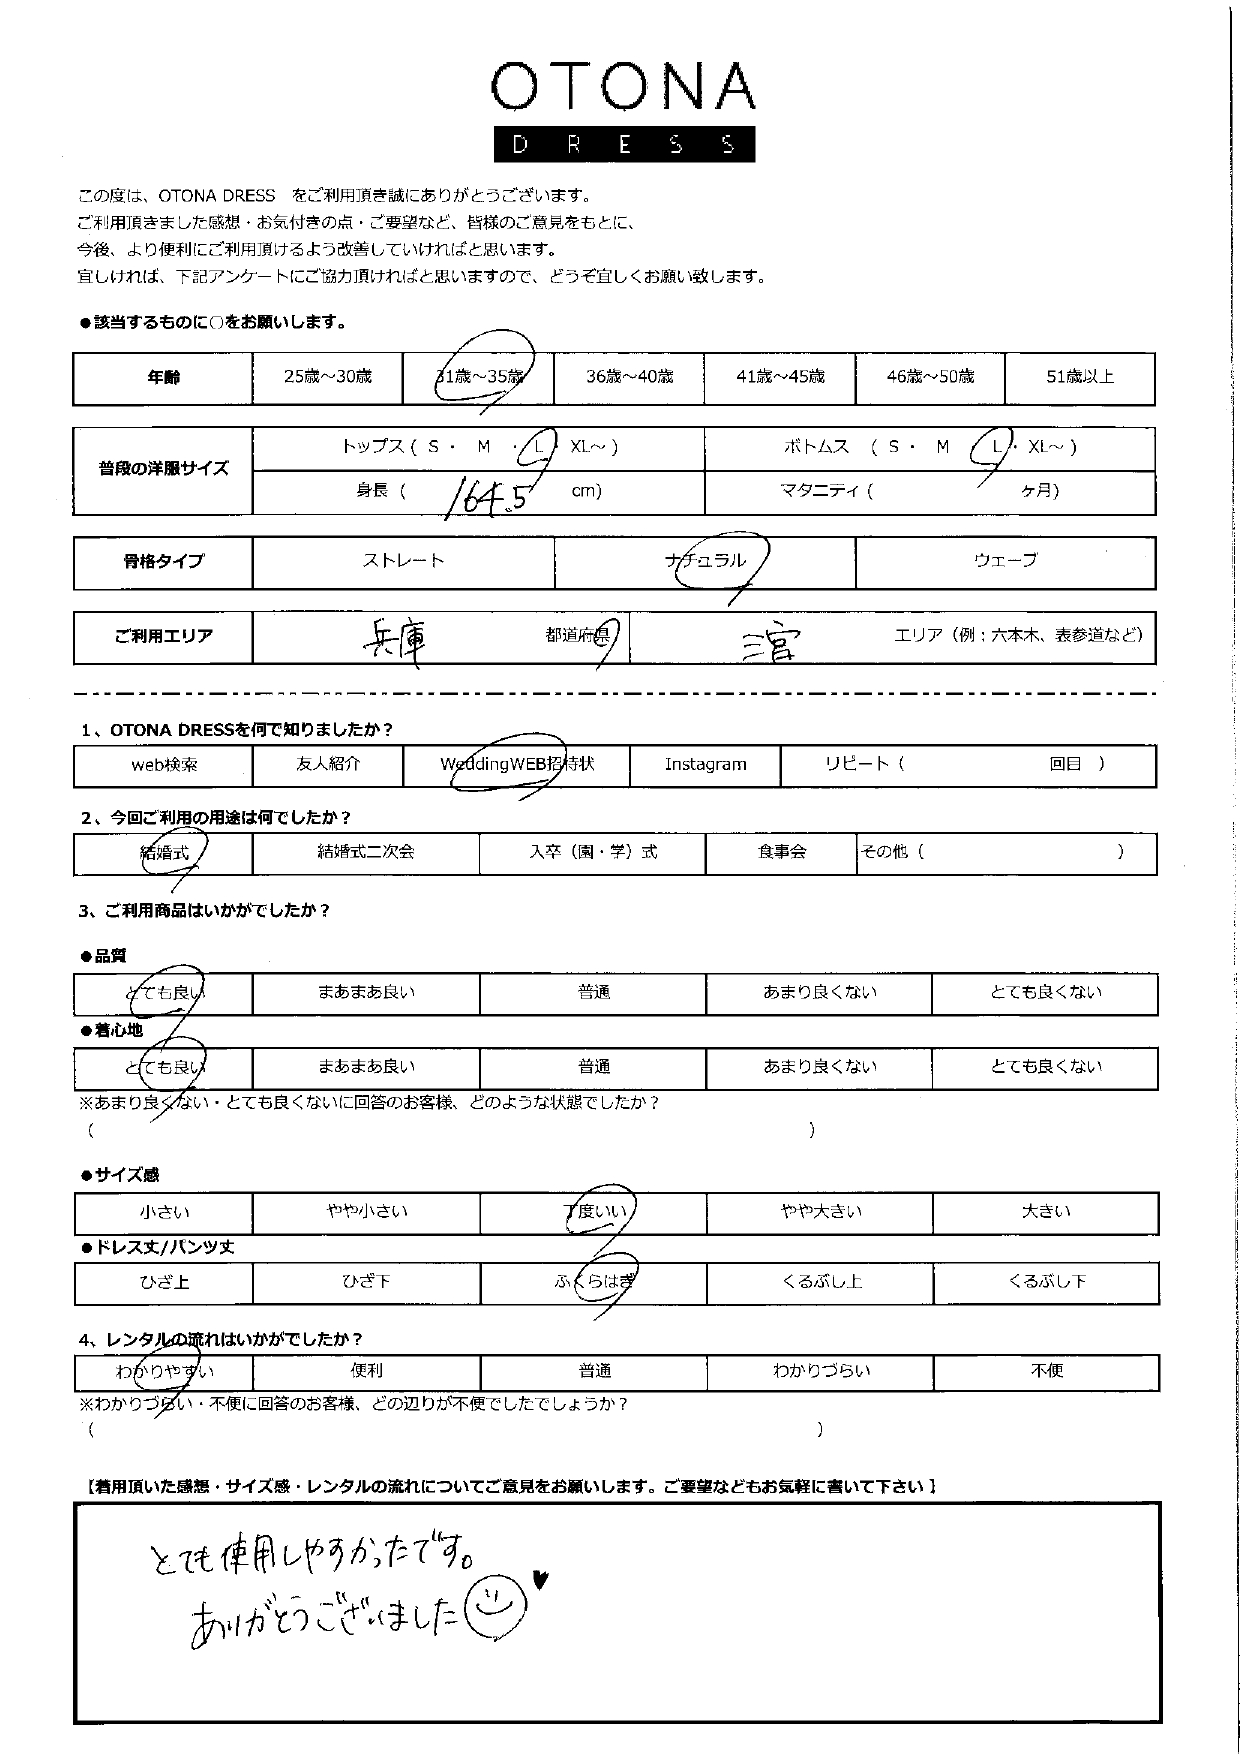 OTONA
DRESS
この度は、OTONA DRESS　をご利用頂き誠にありがとうございます。
ご利用頂きました感想・お気付きの点・ご要望など、皆様のご意見をもとに、
今後、より便利にご利用頂けるよう改善していければと思います。
宜しければ、下記アンケートにご協力頂ければと思いますので、どうぞ宜しくお願い致します。
●該当するものに○をお願いします。
年齢 25歳～30歳 31歳～35歳 36歳～40歳 41歳～45歳 46歳～50歳 51歳以上
普段の洋服サイズ トップス（ S ・ M ・ L ・ XL～ ） ボトムス （ S ・ M ・ L ・ XL～ ）
身長（ 164.5 cm） マタニティ（ ケ月）
骨格タイプ ストレート ナチュラル ウェーブ
ご利用エリア 兵庫 都道府県 三宮 エリア（例；六本木、表参道など）
1、OTONA DRESSを何で知りましたか？
web検索 友人紹介 WeddingWEB招待状 Instagram リピート（ 回目 ）
2、今回ご利用の用途は何でしたか？
結婚式 結婚式二次会 入卒（園・学）式 食事会 その他（ ）
3、ご利用商品はいかがでしたか？
●品質
とても良い まあまあ良い 普通 あまり良くない とても良くない
●着心地
とても良い まあまあ良い 普通 あまり良くない とても良くない
※あまり良くない・とても良くないに回答のお客様、どのような状態でしたか？
（ ）
●サイズ感
小さい やや小さい 丁度いい やや大きい 大きい
●ドレス丈/パンツ丈
ひざ上 ひざ下 ふくらはぎ くるぶし上 くるぶし下
4、レンタルの流れはいかがでしたか？
わかりやすい 便利 普通 わかりづらい 不便
※わかりづらい・不便に回答のお客様、どの辺りが不便でしたでしょうか？
（ ）
【着用頂いた感想・サイズ感・レンタルの流れについてご意見をお願いします。ご要望などもお気軽に書いて下さい】
とても使用しやすかったです。
ありがとうございました